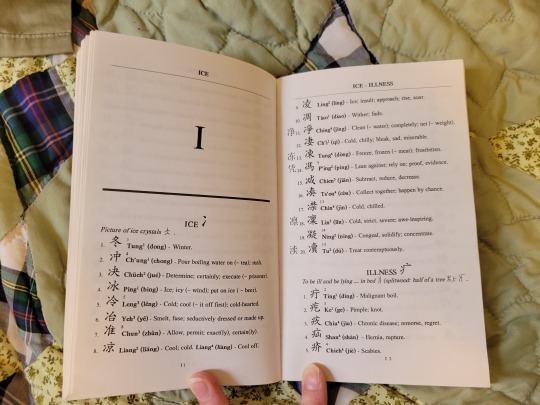 ICE
I
ICE 冫
Picture of ice crystals
1. 冬 Tung¹ (dong) - Winter.
2. 冲 Ch'ung¹ (chong) - Pour boiling water on (~ tea); rush.
3. 决 Chüeh² (jue) - Determine; certainly; execute (~ prisoner).
4. 冰 Ping¹ (bing) - Ice; icy (~ wind); put on ice ( ~ beer).
5. 冷 Leng³ (lěng) - Cold; cool (~ it off first); cold-hearted.
6. 冶 Yeh³ (yě) - Smelt, fuse; seductively dressed or made up.
7. 准 Chun³ (zhǔn) - Allow, permit; exact(ly), certain(ly).
8. 凉 Liang² (liáng) - Cool; cold. Liang⁴ (liàng) - Cool off.
11
ICE - ILLNESS
9. 凌 Ling² (líng) - Ice; insult; approach; rise, soar.
10. 凋 Tiao¹ (diao) - Wither; fade.
11. 凈 Ching⁴ (jìng) - Clean (~ water); completely; net (~ weight).
12. 凄 Ch'i¹ (qi) - Cold, chilly; bleak, sad, miserable.
13. 凍 Tung⁴ (dòng) - Freeze, frozen (~ meat); frostbitten.
14. 馮 P'ing² (píng) - Lean against; rely on; proof, evidence.
15. 减 Chien³ (jiǎn) - Subtract, reduce, decrease.
16. 凑 Ts'ou⁴ (còu) - Collect together; happen by chance.
17. 凚 Chin⁴ (jìn) - Cold, chilled.
18. 凜 Lin³ (lǐn) - Cold, strict, severe; awe-inspiring.
19. 凝 Ning² (níng) - Congeal, solidify; concentrate.
20. Tu² (dú) - Treat contemptuously.
ILLNESS 疒
To be ill and be lying ... in bed (splitwood: half of a tree
1. 疔 Ting¹ (ding) - Malignant boil.
2. 疙 Ke¹ (ge) - Pimple; knot.
3. 疚 Chiu⁴ (jiù) - Chronic disease; remorse, regret.
4. 疝 Shan⁴ (shàn) - Hernia, rupture.
5. 疥 Chieh⁴ (jiè) - Scabies.
12